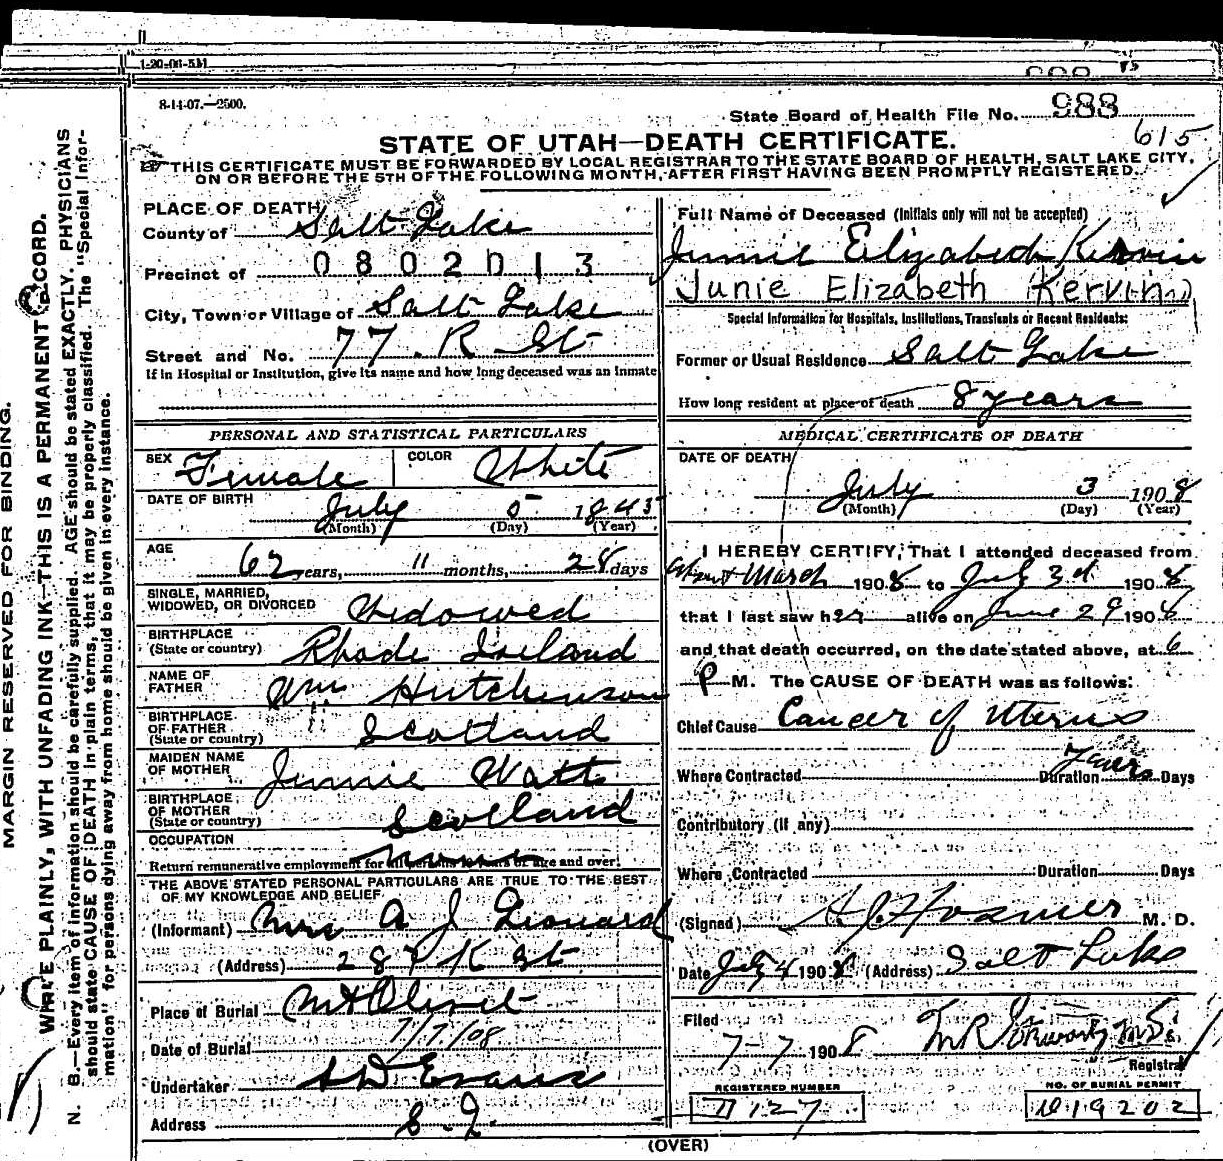 1-20-06-5M
8-14-07.—2500.
State Board of Health File No. 988
615
STATE OF UTAH—DEATH CERTIFICATE.
THIS CERTIFICATE MUST BE FORWARDED BY LOCAL REGISTRAR TO THE STATE BOARD OF HEALTH, SALT LAKE CITY,
ON OR BEFORE THE 5TH OF THE FOLLOWING MONTH, AFTER FIRST HAVING BEEN PROMPTLY REGISTERED.
MARGIN RESERVED FOR BINDING.
WRITE PLAINLY, WITH UNFADING INK—THIS IS A PERMANENT RECORD.
N. B.—Every item of information should be carefully supplied. AGE should be stated EXACTLY. PHYSICIANS
should state CAUSE OF DEATH in plain terms, that it may be properly classified. The "Special Infor-
mation" for persons dying away from home should be given in every instance.
PLACE OF DEATH
County of Salt Lake
Precinct of 0802013
City, Town or Village of Salt Lake
Street and No. 77 R St
If in Hospital or Institution, give its name and how long deceased was an inmate
PERSONAL AND STATISTICAL PARTICULARS
SEX Female COLOR White
DATE OF BIRTH
July 5 1845
(Month) (Day) (Year)
AGE
62 years, 11 months, 28 days
SINGLE, MARRIED,
WIDOWED, OR DIVORCED Widowed
BIRTHPLACE
(State or country) Rhode Island
NAME OF
FATHER Wm Hutchinson
BIRTHPLACE
OF FATHER
(State or country) Scotland
MAIDEN NAME
OF MOTHER Jennie Watts
BIRTHPLACE
OF MOTHER
(State or country) Scotland
OCCUPATION
None
Return remunerative employment for all persons 10 years of age and over.
THE ABOVE STATED PERSONAL PARTICULARS ARE TRUE TO THE BEST
OF MY KNOWLEDGE AND BELIEF
(Informant) Mrs A J Leonard
(Address) 287 K St
Place of Burial Mt Olivet
Date of Burial 7/7/08
Undertaker S D Evans
Address S. L.
Full Name of Deceased (Initials only will not be accepted)
Junnie Elizabeth Kervin
Junie Elizabeth (Kervin)
Special Information for Hospitals, Institutions, Transients or Recent Residents:
Former or Usual Residence Salt Lake
How long resident at place of death 8 years
MEDICAL CERTIFICATE OF DEATH
DATE OF DEATH
July 3 1908
(Month) (Day) (Year)
I HEREBY CERTIFY, That I attended deceased from
about March 1908 to July 3d 1908
that I last saw her alive on June 29 1908
and that death occurred, on the date stated above, at 6
P M. The CAUSE OF DEATH was as follows:
Chief Cause Cancer of Uterus
Where Contracted Duration years Days
Contributory (if any)
Where Contracted Duration Days
(Signed) M. D.
Date July 4 1908 (Address) Salt Lake
Filed
7-7 1908
Registrar
REGISTERED NUMBER NO. OF BURIAL PERMIT
D 127 D19202
(OVER)